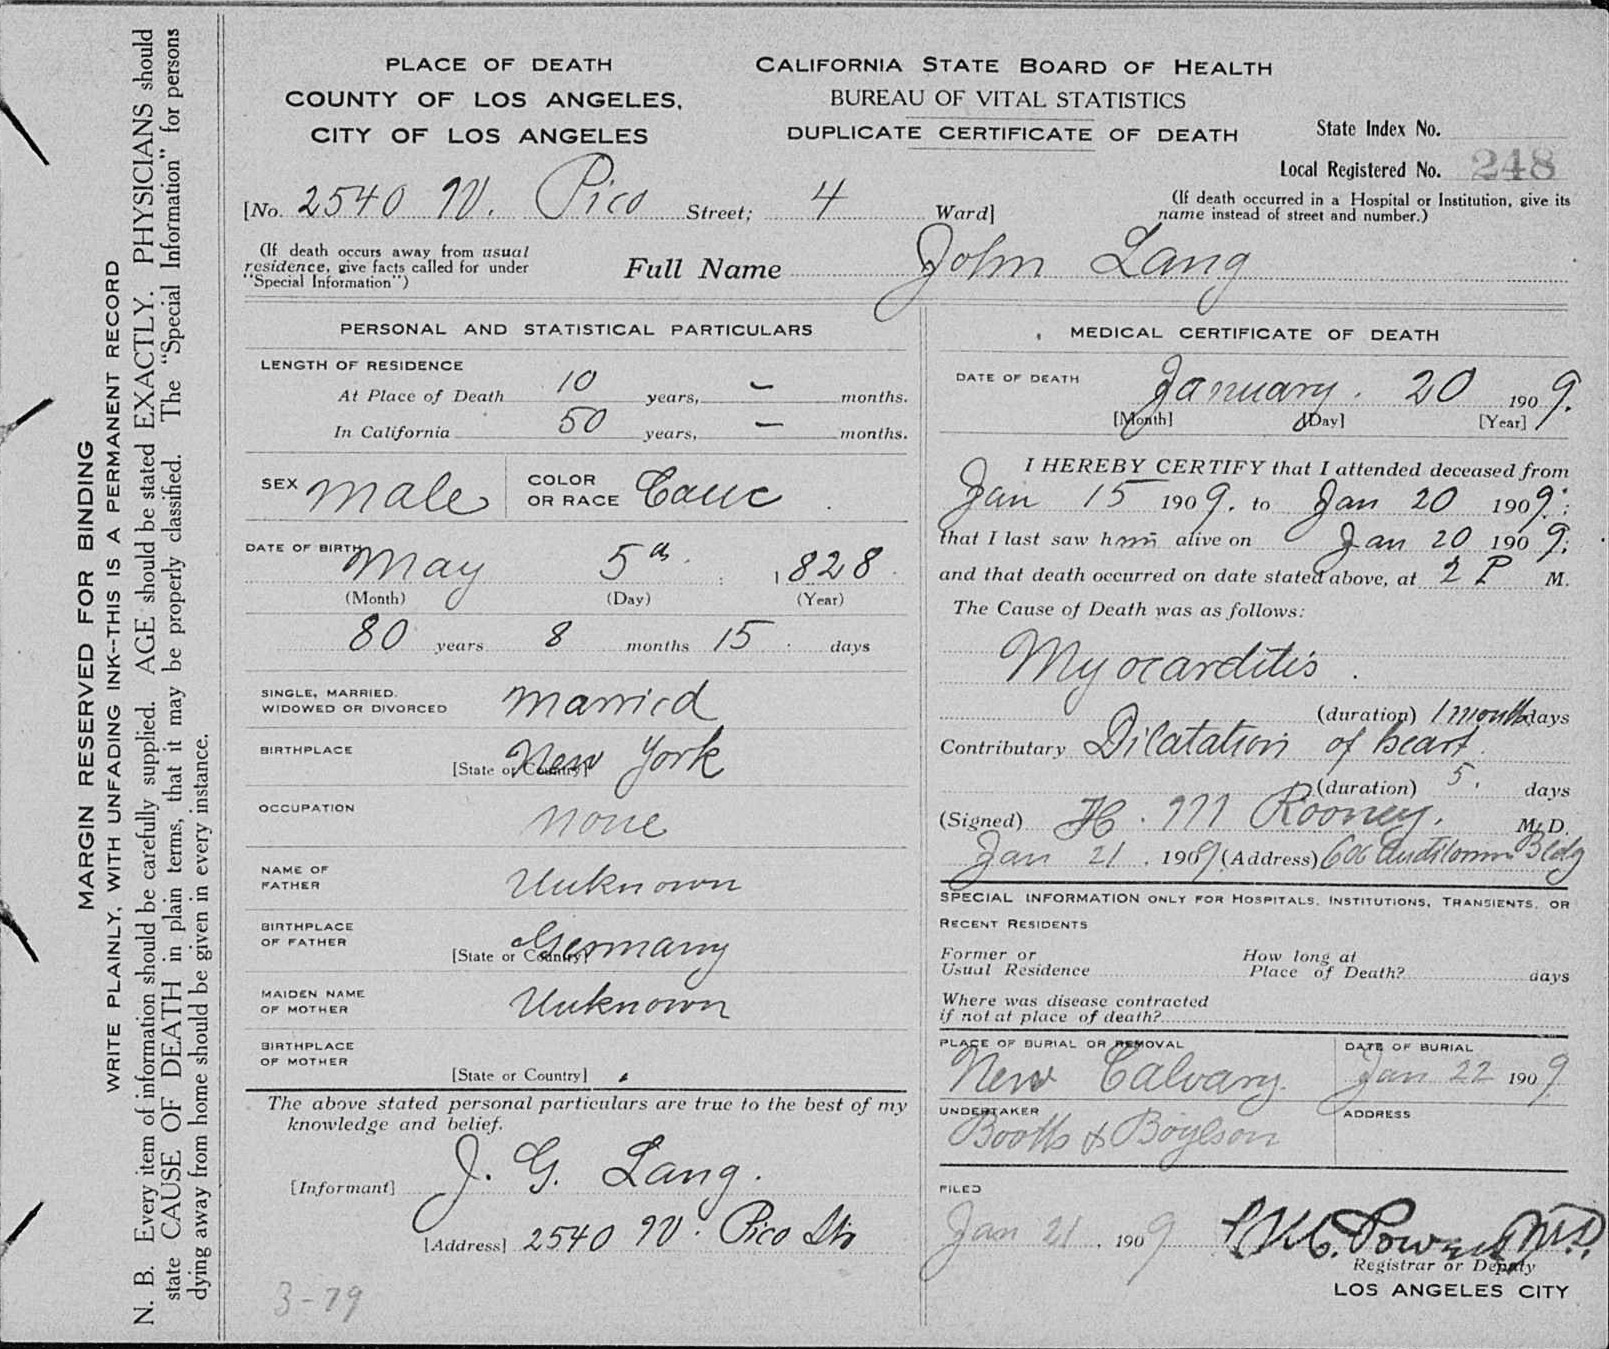 MARGIN RESERVED FOR BINDING
WRITE PLAINLY, WITH UNFADING INK--THIS IS A PERMANENT RECORD
N. B. Every item of information should be carefully supplied. AGE should be stated EXACTLY. PHYSICIANS should
state CAUSE OF DEATH in plain terms, that it may be properly classified. The "Special Information" for persons
dying away from home should be given in every instance.
PLACE OF DEATH
COUNTY OF LOS ANGELES,
CITY OF LOS ANGELES
CALIFORNIA STATE BOARD OF HEALTH
BUREAU OF VITAL STATISTICS
DUPLICATE CERTIFICATE OF DEATH
State Index No.
Local Registered No. 248
[No. 2540 W. Pico Street; 4 Ward]
(If death occurred in a Hospital or Institution, give its
name instead of street and number.)
(If death occurs away from usual
residence, give facts called for under
"Special Information")
Full Name John Lang
PERSONAL AND STATISTICAL PARTICULARS
LENGTH OF RESIDENCE
At Place of Death 10 years, – months.
In California 50 years, – months.
SEX Male COLOR
OR RACE Cauc
DATE OF BIRTH May 5th 1828
(Month) (Day) (Year)
80 years 8 months 15 days
SINGLE, MARRIED,
WIDOWED OR DIVORCED Married
BIRTHPLACE
[State or Country] New York
OCCUPATION None
NAME OF
FATHER Unknown
BIRTHPLACE
OF FATHER [State or Country] Germany
MAIDEN NAME
OF MOTHER Unknown
BIRTHPLACE
OF MOTHER
[State or Country]
The above stated personal particulars are true to the best of my
knowledge and belief.
[Informant] J. G. Lang.
[Address] 2540 W. Pico Str
3-79
MEDICAL CERTIFICATE OF DEATH
DATE OF DEATH January. 20 1909.
[Month] [Day] [Year]
I HEREBY CERTIFY that I attended deceased from
Jan 15 1909. to Jan 20 1909;
that I last saw him alive on Jan 20 1909;
and that death occurred on date stated above, at 2 P M.
The Cause of Death was as follows:
Myocarditis.
(duration) 1 month days
Contributary Dilatation of heart.
(duration) 5. days
(Signed) H. M Rooney. M. D.
Jan 21. 1909 (Address) 606 Auditorium Bldg
SPECIAL INFORMATION ONLY FOR HOSPITALS, INSTITUTIONS, TRANSIENTS, OR
RECENT RESIDENTS
Former or
Usual Residence
How long at
Place of Death? days
Where was disease contracted
if not at place of death?
PLACE OF BURIAL OR REMOVAL
New Calvary.
DATE OF BURIAL
Jan 22 1909
UNDERTAKER
Booth & Boylson
ADDRESS
FILED
Jan 21. 1909 Powers M.D.
Registrar or Deputy
LOS ANGELES CITY